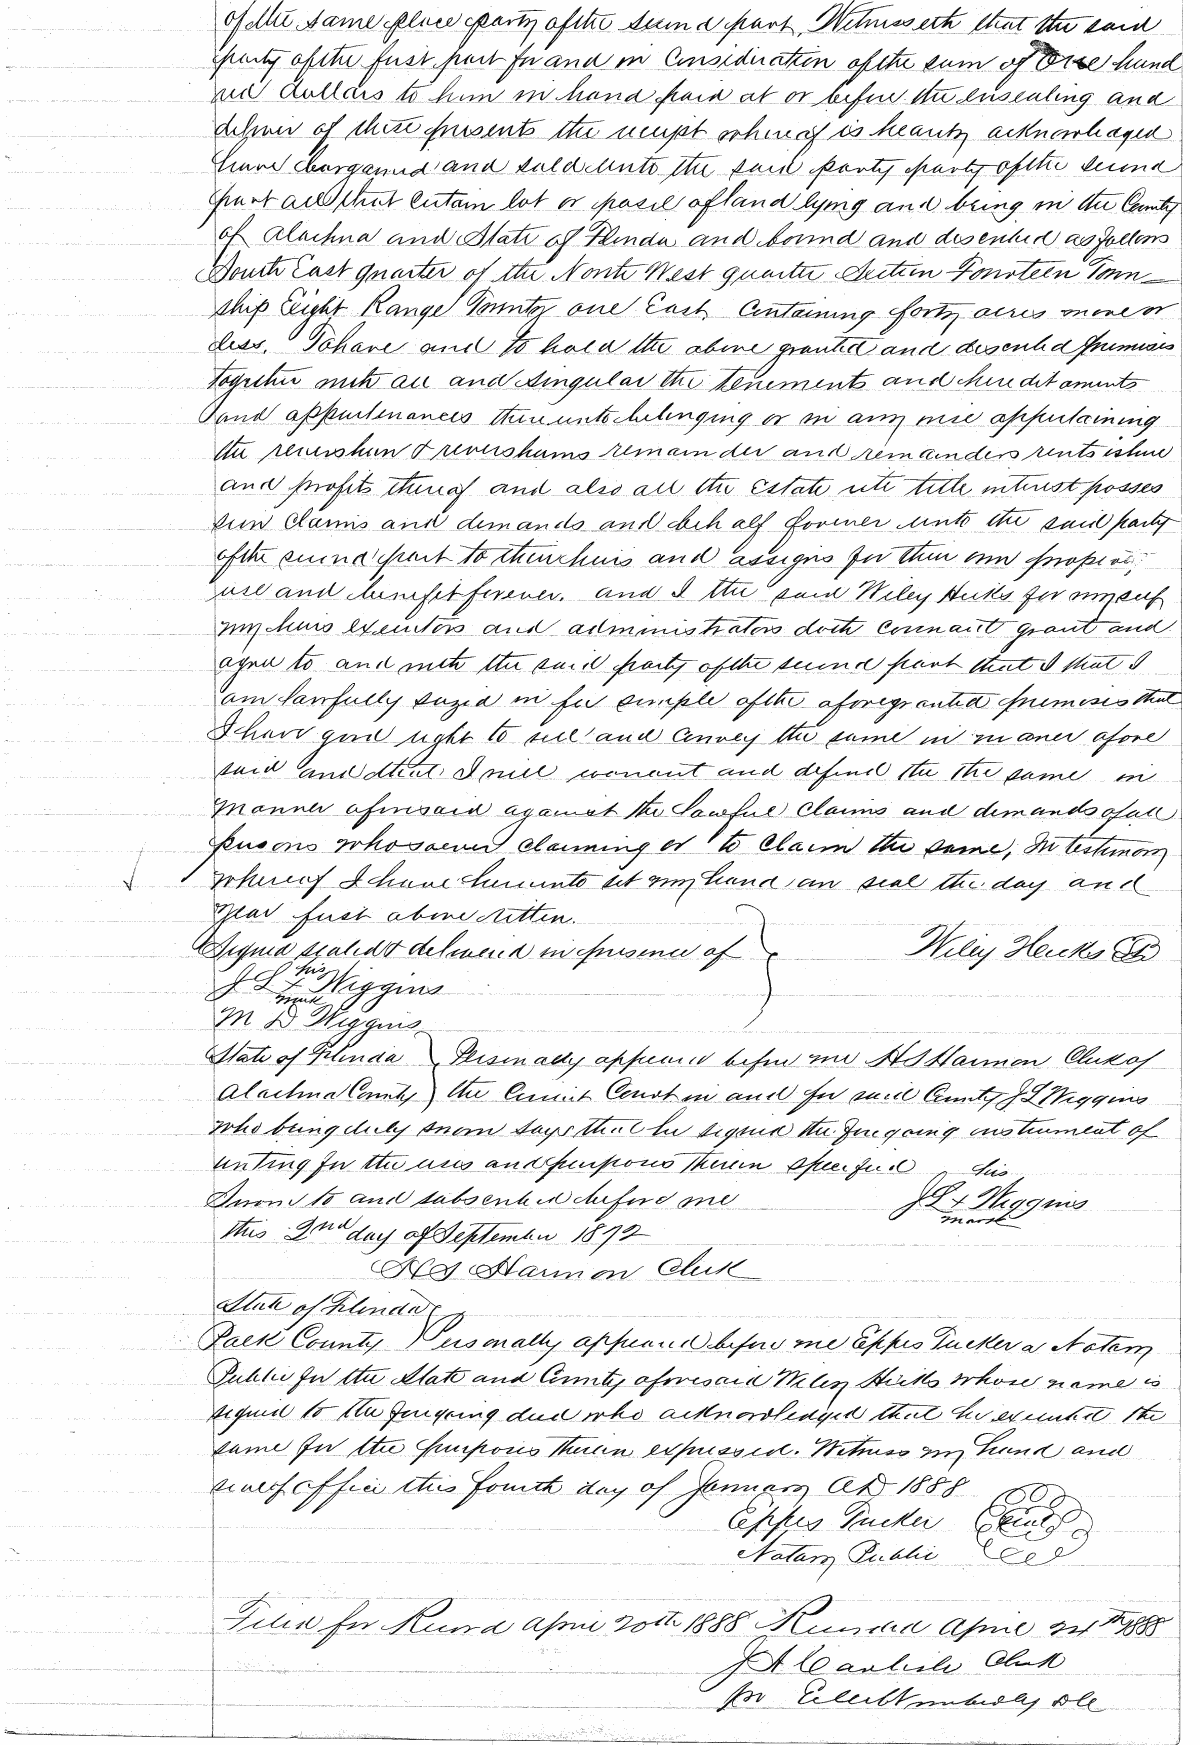 of the same place party of the second part, Witnesseth that the said
party of the first part for and in Consideration of the sum of One hund
red dollars to him in hand paid at or before the ensealing and
deliver of these presents the receipt whereof is hearby acknowledged
have bargained and sold unto the said party party of the second
part all that certain lot or pasel of land lying and being in the County
of Alachua and State of Florida and bound and described as follows
South East quarter of the North West quarter Section Fourteen Town
ship Eight Range Twenty one East. Containing forty acres more or
less. To have and to hold the above granted and described premises
together with all and singular the tenements and hereditaments
and appurtenances thereunto belonging or in any wise appertaining
the revershun & revershuns remainder and remainders rents ishue
and profits thereof and also all the Estate rite title interest posses
sion Claims and demands and behalf forever unto the said party
of the second part to their heirs and assigns for their own proper
use and benefit forever. and I the said Wiley Hicks for myself
my heirs executors and administrators doth covenant grant and
agree to and with the said party of the second part that I that I
am lawfully sazed in fee simple of the aforegranted premises that
I have good right to sell and Convey the same in maner afore
said and that I will warrant and defend the the same in
manner aforesaid against the lawful Claims and demands of all
persons whosoever claiming or to claim the same, In testimony
whereof I have hereunto set my hand an seal the day and
year first above ritten.
Signed sealed & delivered in presence of Wiley Hicks
his
J L + Wiggins
mark
M D Wiggins
State of Florida Personally appeared before me H S Harmon Clerk of
Alachua County the Circuit Court in and for said County J L Wiggins
who being duly sworn says that he signed the foregoing instrument of
writing for the uses and purposes therein specified his
Sworn to and subscribed before me J L + Wiggins
mark
this 2nd day of September 1872
H S Harmon Clerk
State of Florida
Polk County Personally appeared before me Eppes Tucker a Notary
Public for the State and County aforesaid Wiley Hicks whose name is
signed to the foregoing deed who acknowledged that he executed the
same for the purposes therein expressed. Witness my hand and
seal of office this Fourth day of January AD 1888
Eppes Tucker Seal
Notary Public
Filed for Record April 20th 1888 Recorded April 24th 1888
J A Carlisle Clerk